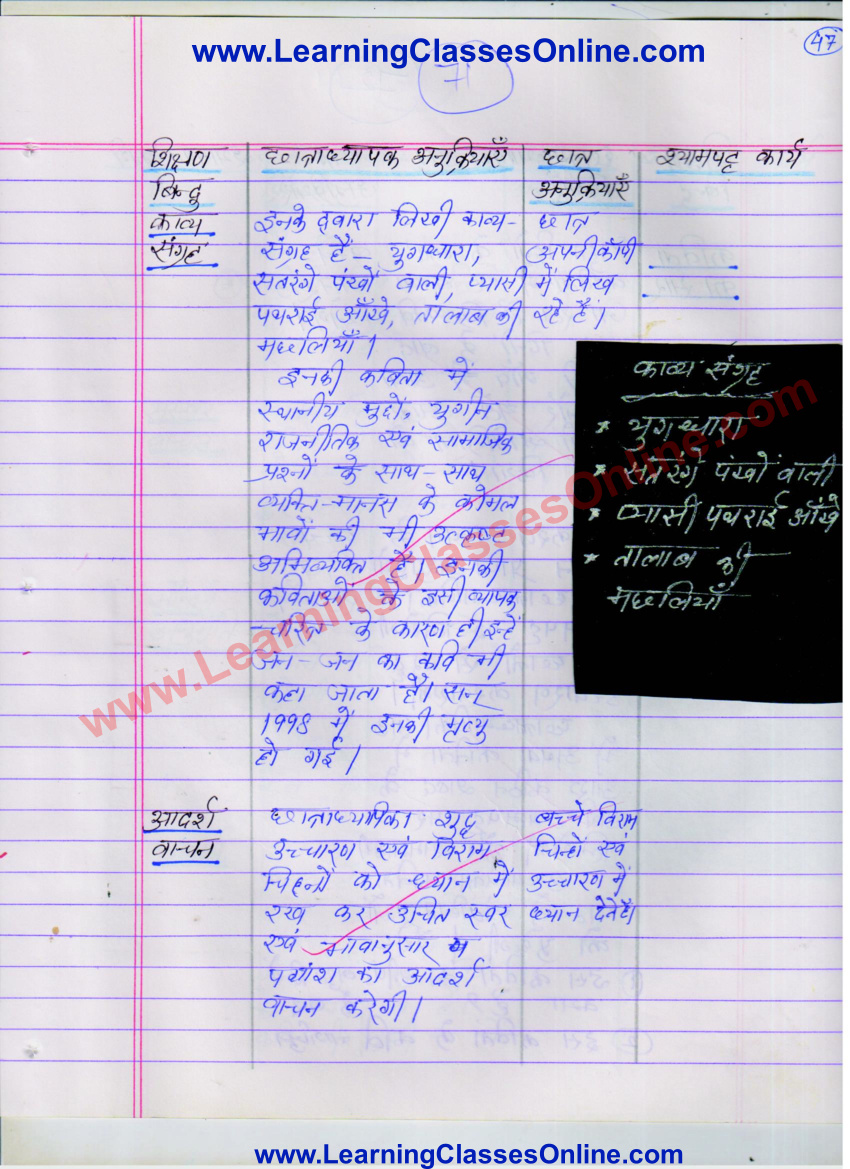 www.LearningClassesOnline.com
47
71
शिक्षण बिन्दु
छात्राध्यापक अनुक्रियाएँ
छात्र अनुक्रियाएँ
श्यामपट्ट कार्य
काव्य
संग्रह
इनके द्वारा लिखी काव्य-
संग्रह हैं - युगधारा,
सतरंगे पंखों वाली, प्यासी
पथराई आँखे, तालाब की
मछलियाँ।
इनकी कविता में
स्थानीय मुद्दों, युगीन
राजनीतिक एवं सामाजिक
प्रश्नों के साथ-साथ
व्यक्ति-मानस के कोमल
भावों की भी उत्कृष्ट
अभिव्यक्ति है। इनकी
कविताओं के इसी व्यापक
चरित्र के कारण ही इन्हें
जन-जन का कवि भी
कहा जाता है। सन्
1998 में इनकी मृत्यु
हो गई।
छात्र
अपनी कॉपी
में लिख
रहे हैं।
काव्य संग्रह
* युगधारा
* सतरंगे पंखों वाली
* प्यासी पथराई आँखे
* तालाब की
मछलियाँ
आदर्श
वाचन
छात्राध्यापिका शुद्ध
उच्चारण एवं विराम
चिह्नों को ध्यान में
रख कर उचित स्वर
एवं भावानुसार
पद्यांश का आदर्श
वाचन करेगी।
बच्चे विराम
चिन्हों एवं
उच्चारण में
ध्यान देते है।
www.LearningClassesOnline.com
www.LearningClassesOnline.com